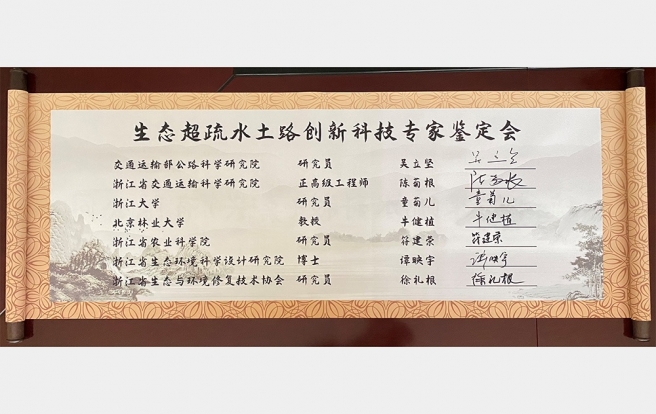 生态超疏水土路创新科技专家鉴定会
交通运输部公路科学研究院 研究员 吴立坚 吴立坚
浙江省交通运输科学研究院 正高级工程师 陈菊根
浙江大学 研究员 童菊儿 童菊儿
北京林业大学 教授 牛健植 牛健植
浙江省农业科学院 研究员 符建荣 符建荣
浙江省生态环境科学设计研究院 博士 谭映宇 谭映宇
浙江省生态与环境修复技术协会 研究员 徐礼根 徐礼根